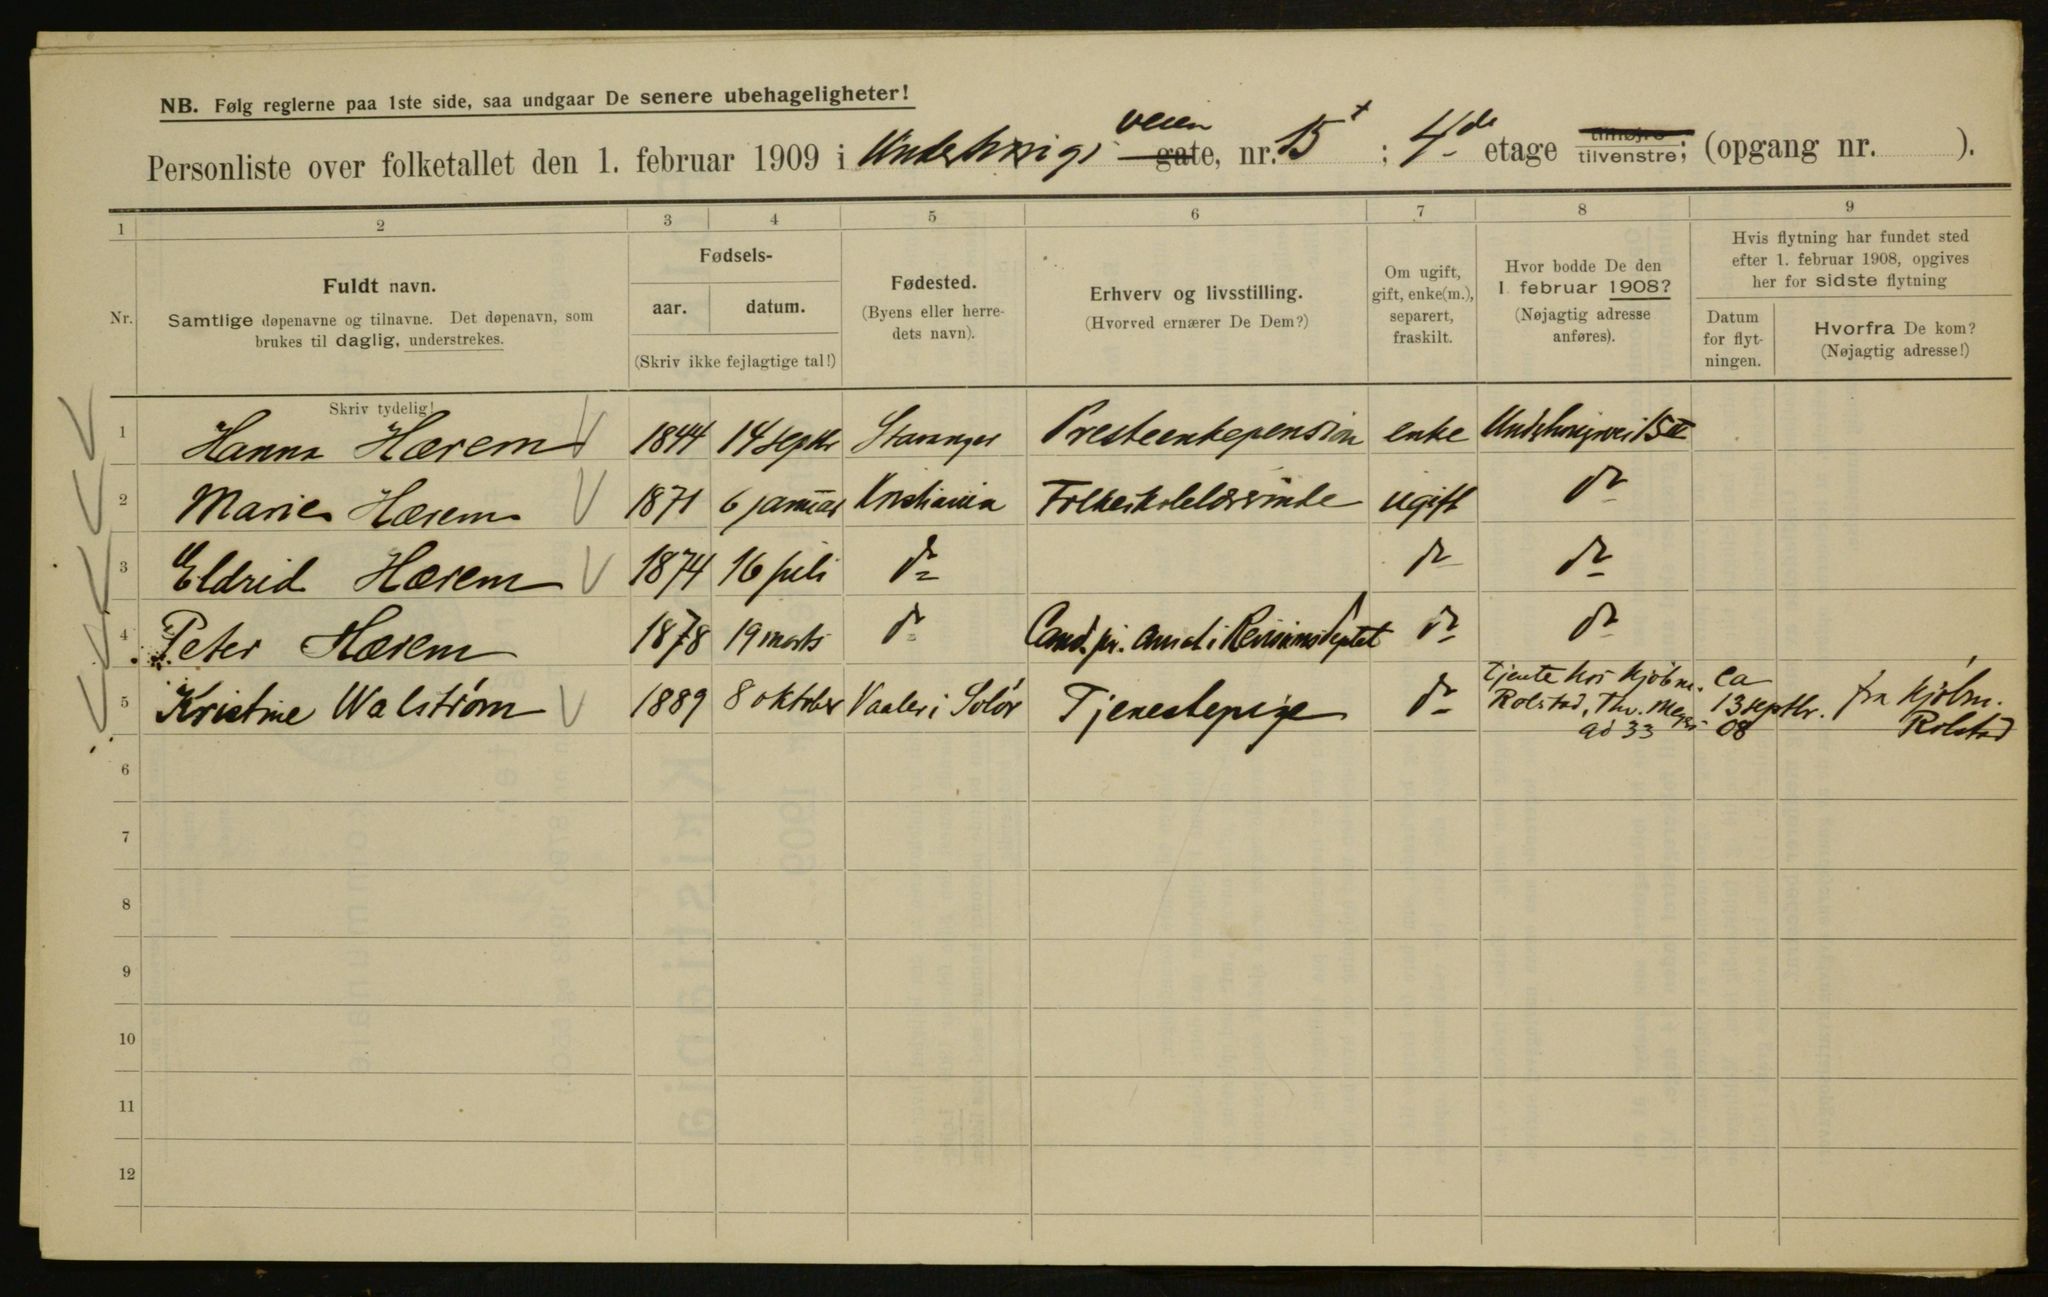 NB. Følg reglerne paa 1ste side, saa undgaar De senere ubehageligheter!
Personliste over folketallet den 1. februar 1909 i Underhaugs veien gate, nr. 15 ; 4de etage tilhøire tilvenstre; (opgang nr. ).
1 2 3 4 5 6 7 8 9
Nr.
Fuldt navn.
Samtlige døpenavne og tilnavne. Det døpenavn, som
brukes til daglig, understrekes.
Fødsels-
aar. datum.
(Skriv ikke fejlagtige tal!)
Fødested.
(Byens eller herre-
dets navn).
Erhverv og livsstilling.
(Hvorved ernærer De Dem?)
Om ugift,
gift, enke(m.),
separert,
fraskilt.
Hvor bodde De den
1. februar 1908?
(Nøjagtig adresse
anføres).
Hvis flytning har fundet sted
efter 1. februar 1908, opgives
her for sidste flytning
Datum
for flyt-
ningen.
Hvorfra De kom?
(Nøjagtig adresse!)
Skriv tydelig!
1 Hanna Hærem 1844 14 septbr Stavanger Presteenkepension enke Underhaugsvei 15 IV
2 Marie Hærem 1871 6 januar Kristiania Folkeskolelærerinde ugift do
3 Eldrid Hærem 1874 16 juli do do do
4 Peter Hærem 1878 19 marts do Cand. jur. ansat i Revisionsdeptet do do
5 Kristine Walstrøm 1889 8 oktober Vaaler i Solør Tjenestepige do Tjente hos kjøbm. Rolstad, Thv. Meyers gd 33 ca 13 septbr. 08 fra kjøbm. Rolstad
6
7
8
9
10
11
12